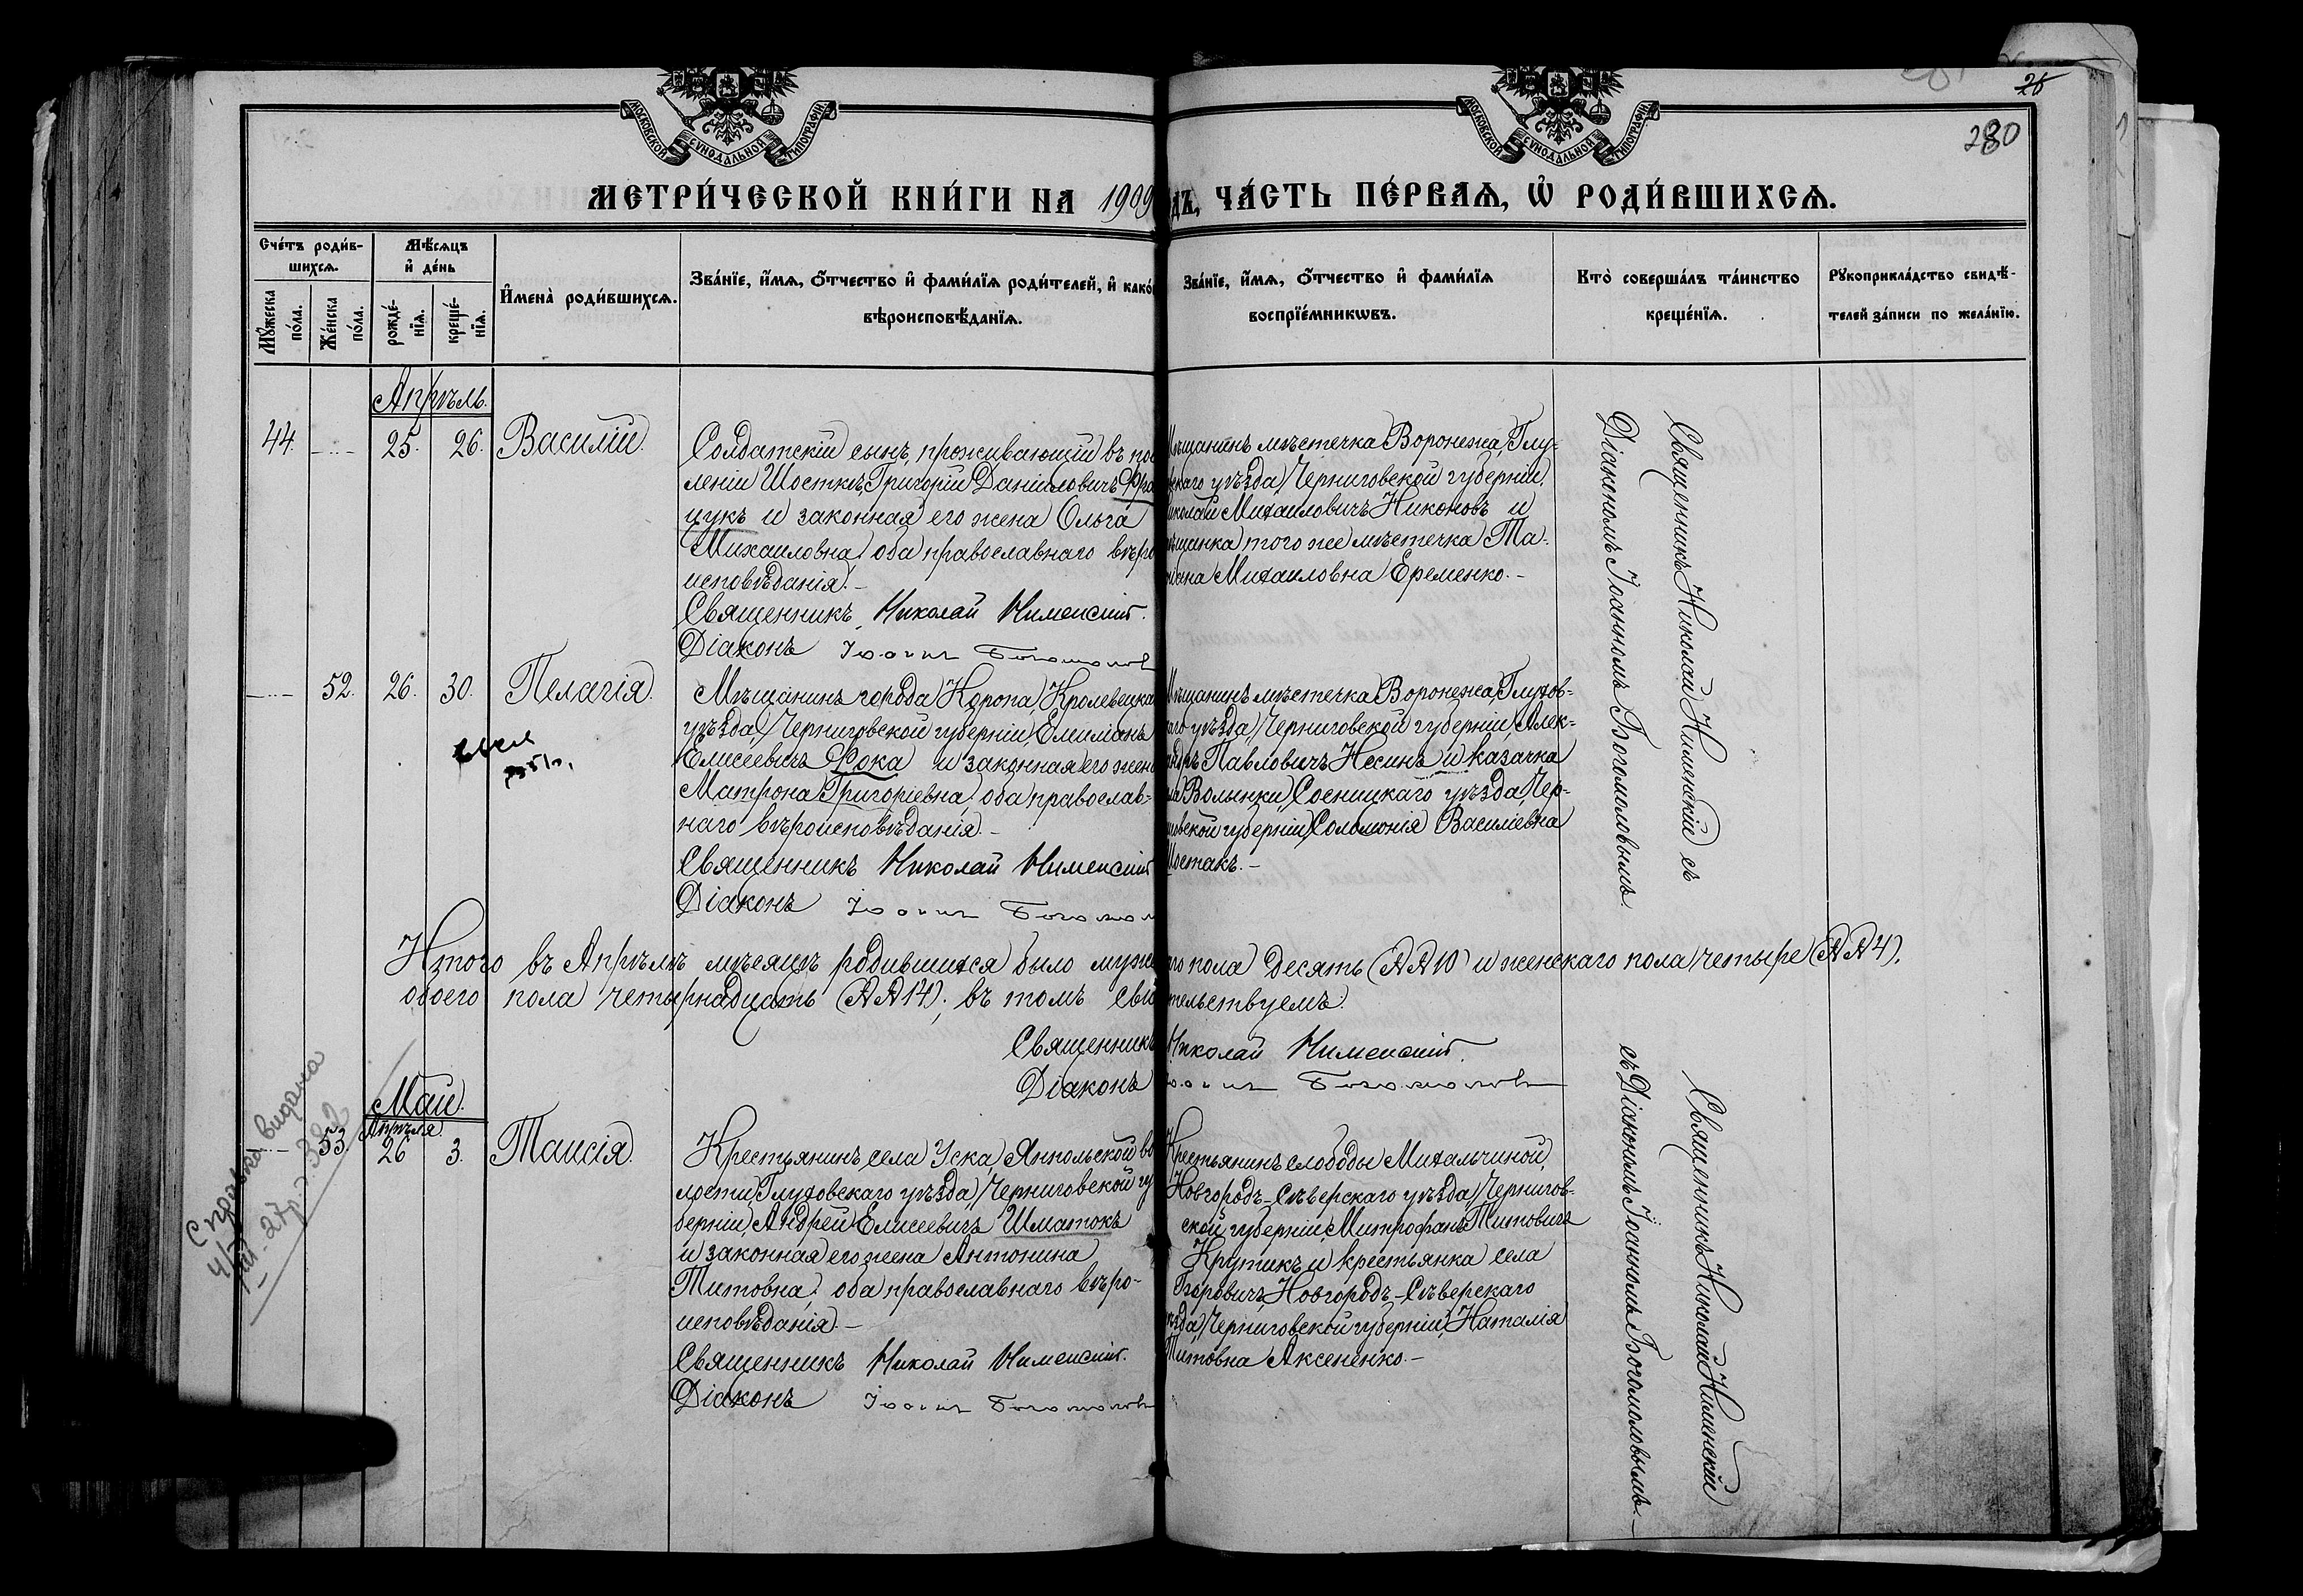 26
280
МОСКОВСКОЙ СѴНОДАЛЬНОЙ ТИПОГРАФІИ
МОСКОВСКОЙ СѴНОДАЛЬНОЙ ТИПОГРАФІИ
МЕТРИ́ЧЕСКОЙ КНИ́ГИ НА 1909
дъ, ЧА́СТЬ ПЕ́РВАѦ, Ѡ҆ РОДИ́ВШИХСѦ.
Сче́тъ роди́в-
шихсѧ.
Мꙋ́жеска
по́ла.
Же́нска
по́ла.
Мѣ́сѧцъ
и҆ де́нь
рожде́-
нїѧ.
креще́-
нїѧ.
И҆мена̀ роди́вшихсѧ.
Зва́нїе, и҆́мѧ, ѻ҆́тчество и҆ фами́лїѧ роди́телей, и҆ како́
вѣроисповѣ́данїѧ.
Зва́нїе, и҆́мѧ, ѻ҆́тчество и҆ фами́лїѧ
воспрїе́мникѡвъ.
Кто̀ соверша́лъ та́инство
креще́нїѧ.
Рꙋкоприкла́дство свидѣ́-
телей за́писи по жела́нїю.
Апрѣль.
44. 25. 26. Василій.
Солдатскій сынъ, проживающій въ посе
леніи Шосткѣ, Григорій Даніиловичъ Фра
цукъ и законная его жена Ольга
Михаиловна, оба православнаго вѣро
исповѣданія.-
Священникъ Николай Нименскій.
Діаконъ Іоаннъ Богомолов
Мѣщанинъ мѣстечка Воронежа, Глу-
скаго уѣзда, Черниговской губерніи,
иколай Михаиловичъ Никоновъ и
мѣщанка того же мѣстечка Та-
тіана Михаиловна Еременко.-
Священникъ Николай Нименскій съ
Діакономъ Іоанномъ Богомоловымъ.
52. 26. 30. Пелагія.
Мѣщанинъ города Коропа, Кролевецка
уѣзда, Черниговской губерніи, Емиліанъ
Елисеевичъ Фока и законная его жена
Матрона Григоріевна, оба православ-
наго вѣроисповѣданія.-
Священникъ Николай Нименскій
Діаконъ Іоаннъ Богомол
Мѣщанинъ мѣстечка Воронежа, Глухов-
аго уѣзда, Черниговской губерніи, Алек-
андръ Павловичъ Несинъ и казачка
ла Волынки, Сосницкаго уѣзда, Чер-
иговской губерніи, Соломонія Василіевна
Шостакъ.-
Итого въ Апрѣлѣ мѣсяцѣ родившихся было муже
аго пола десять (АА10) и женскаго пола четыре (АА4),
обоего пола четырнадцать (АА14); въ томъ сви
тельствуемъ:
Священникъ Николай Нименскій.
Діаконъ Іоаннъ Богомолов
Май.
Апрѣля.
53. 26 3. Таисія.
Крестьянинъ села Уска, Янпольской во
лости, Глуховскаго уѣзда, Черниговской гу
берніи, Андрей Елисеевичъ Шматокъ
и законная его жена Антонина
Титовна, оба православнаго вѣро-
исповѣданія.-
Священникъ Николай Нименскій.
Діаконъ Іоаннъ Богомолов
Крестьянинъ слободы Михальчиной,
Новгородъ-Сѣверскаго уѣзда, Чернигов-
ской губерніи, Митрофанъ Титовичъ
Крутикъ и крестьянка села
Боровичъ, Новгородъ-Сѣверскаго
ѣзда, Черниговской губерніи, Наталія
Титовна Аксененко.-
Священникъ Николай Нименскій
съ Діакономъ Іоанномъ Богомоловымъ.-
Справка видана